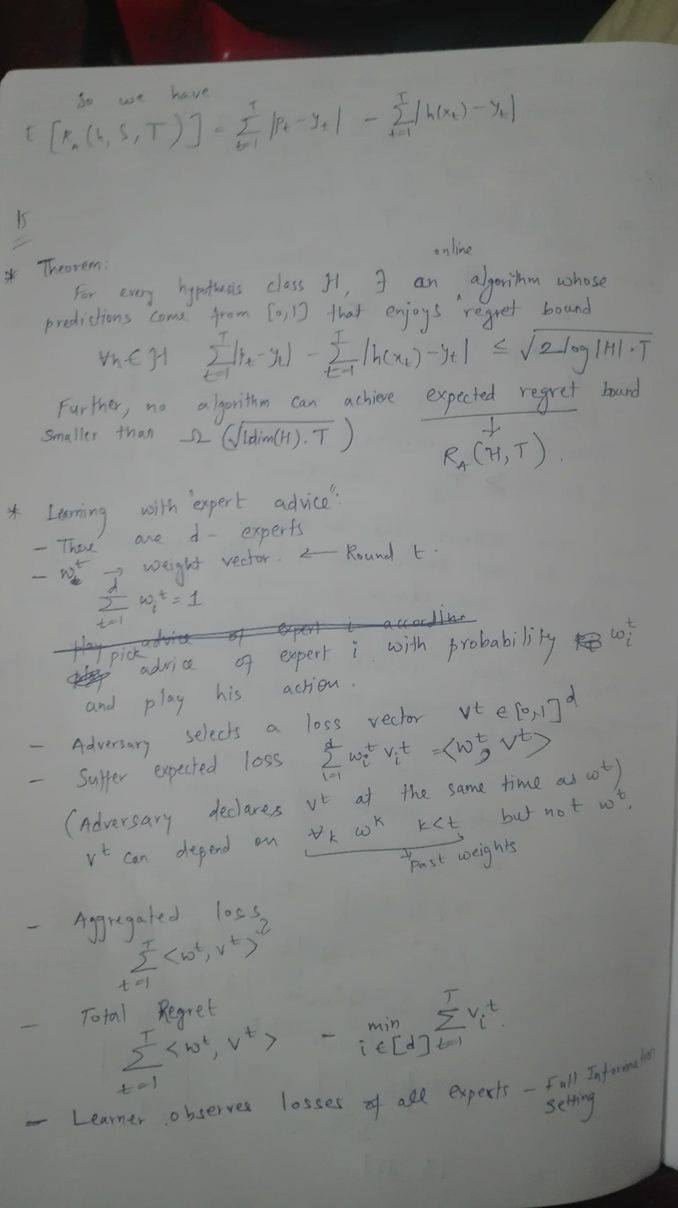 So we have
E [R_A (h, S, T)] = Σ_{t=1}^{T} |p_t - y_t| - Σ_{t=1}^{T} |h(x_t) - y_t|
* Theorem:
online
For every hypothesis class H, ∃ an algorithm whose
predictions come from [0,1] that enjoys regret bound
∀h ∈ H Σ_{t=1}^{T} |p_t - y_t| - Σ_{t=1}^{T} |h(x_t) - y_t| ≤ √(2 log |H| · T)
Further, no algorithm can achieve expected regret bound
smaller than Ω (√(Ldim(H) · T))
↓
R_A (H, T).
* Learning with "expert advice":
- There are d - experts
- w^t → weight vector. ← Round t.
Σ_{t=1}^{d} w_i^t = 1
pick advice of expert i with probability w_i^t
and play his action.
- Adversary selects a loss vector v^t ∈ [0,1]^d
- Suffer expected loss Σ_{i=1}^{d} w_i^t v_i^t = <w^t, v^t>
(Adversary declares v^t at the same time as w^t)
v^t can depend on ∀k w^k k<t but not w^t.
↓ Past weights
- Aggregated loss
Σ_{t=1}^{T} <w^t, v^t>
- Total Regret
Σ_{t=1}^{T} <w^t, v^t> - min_{i ∈ [d]} Σ_{t=1}^{T} v_i^t.
- Learner observes losses of all experts - Full Information
Setting